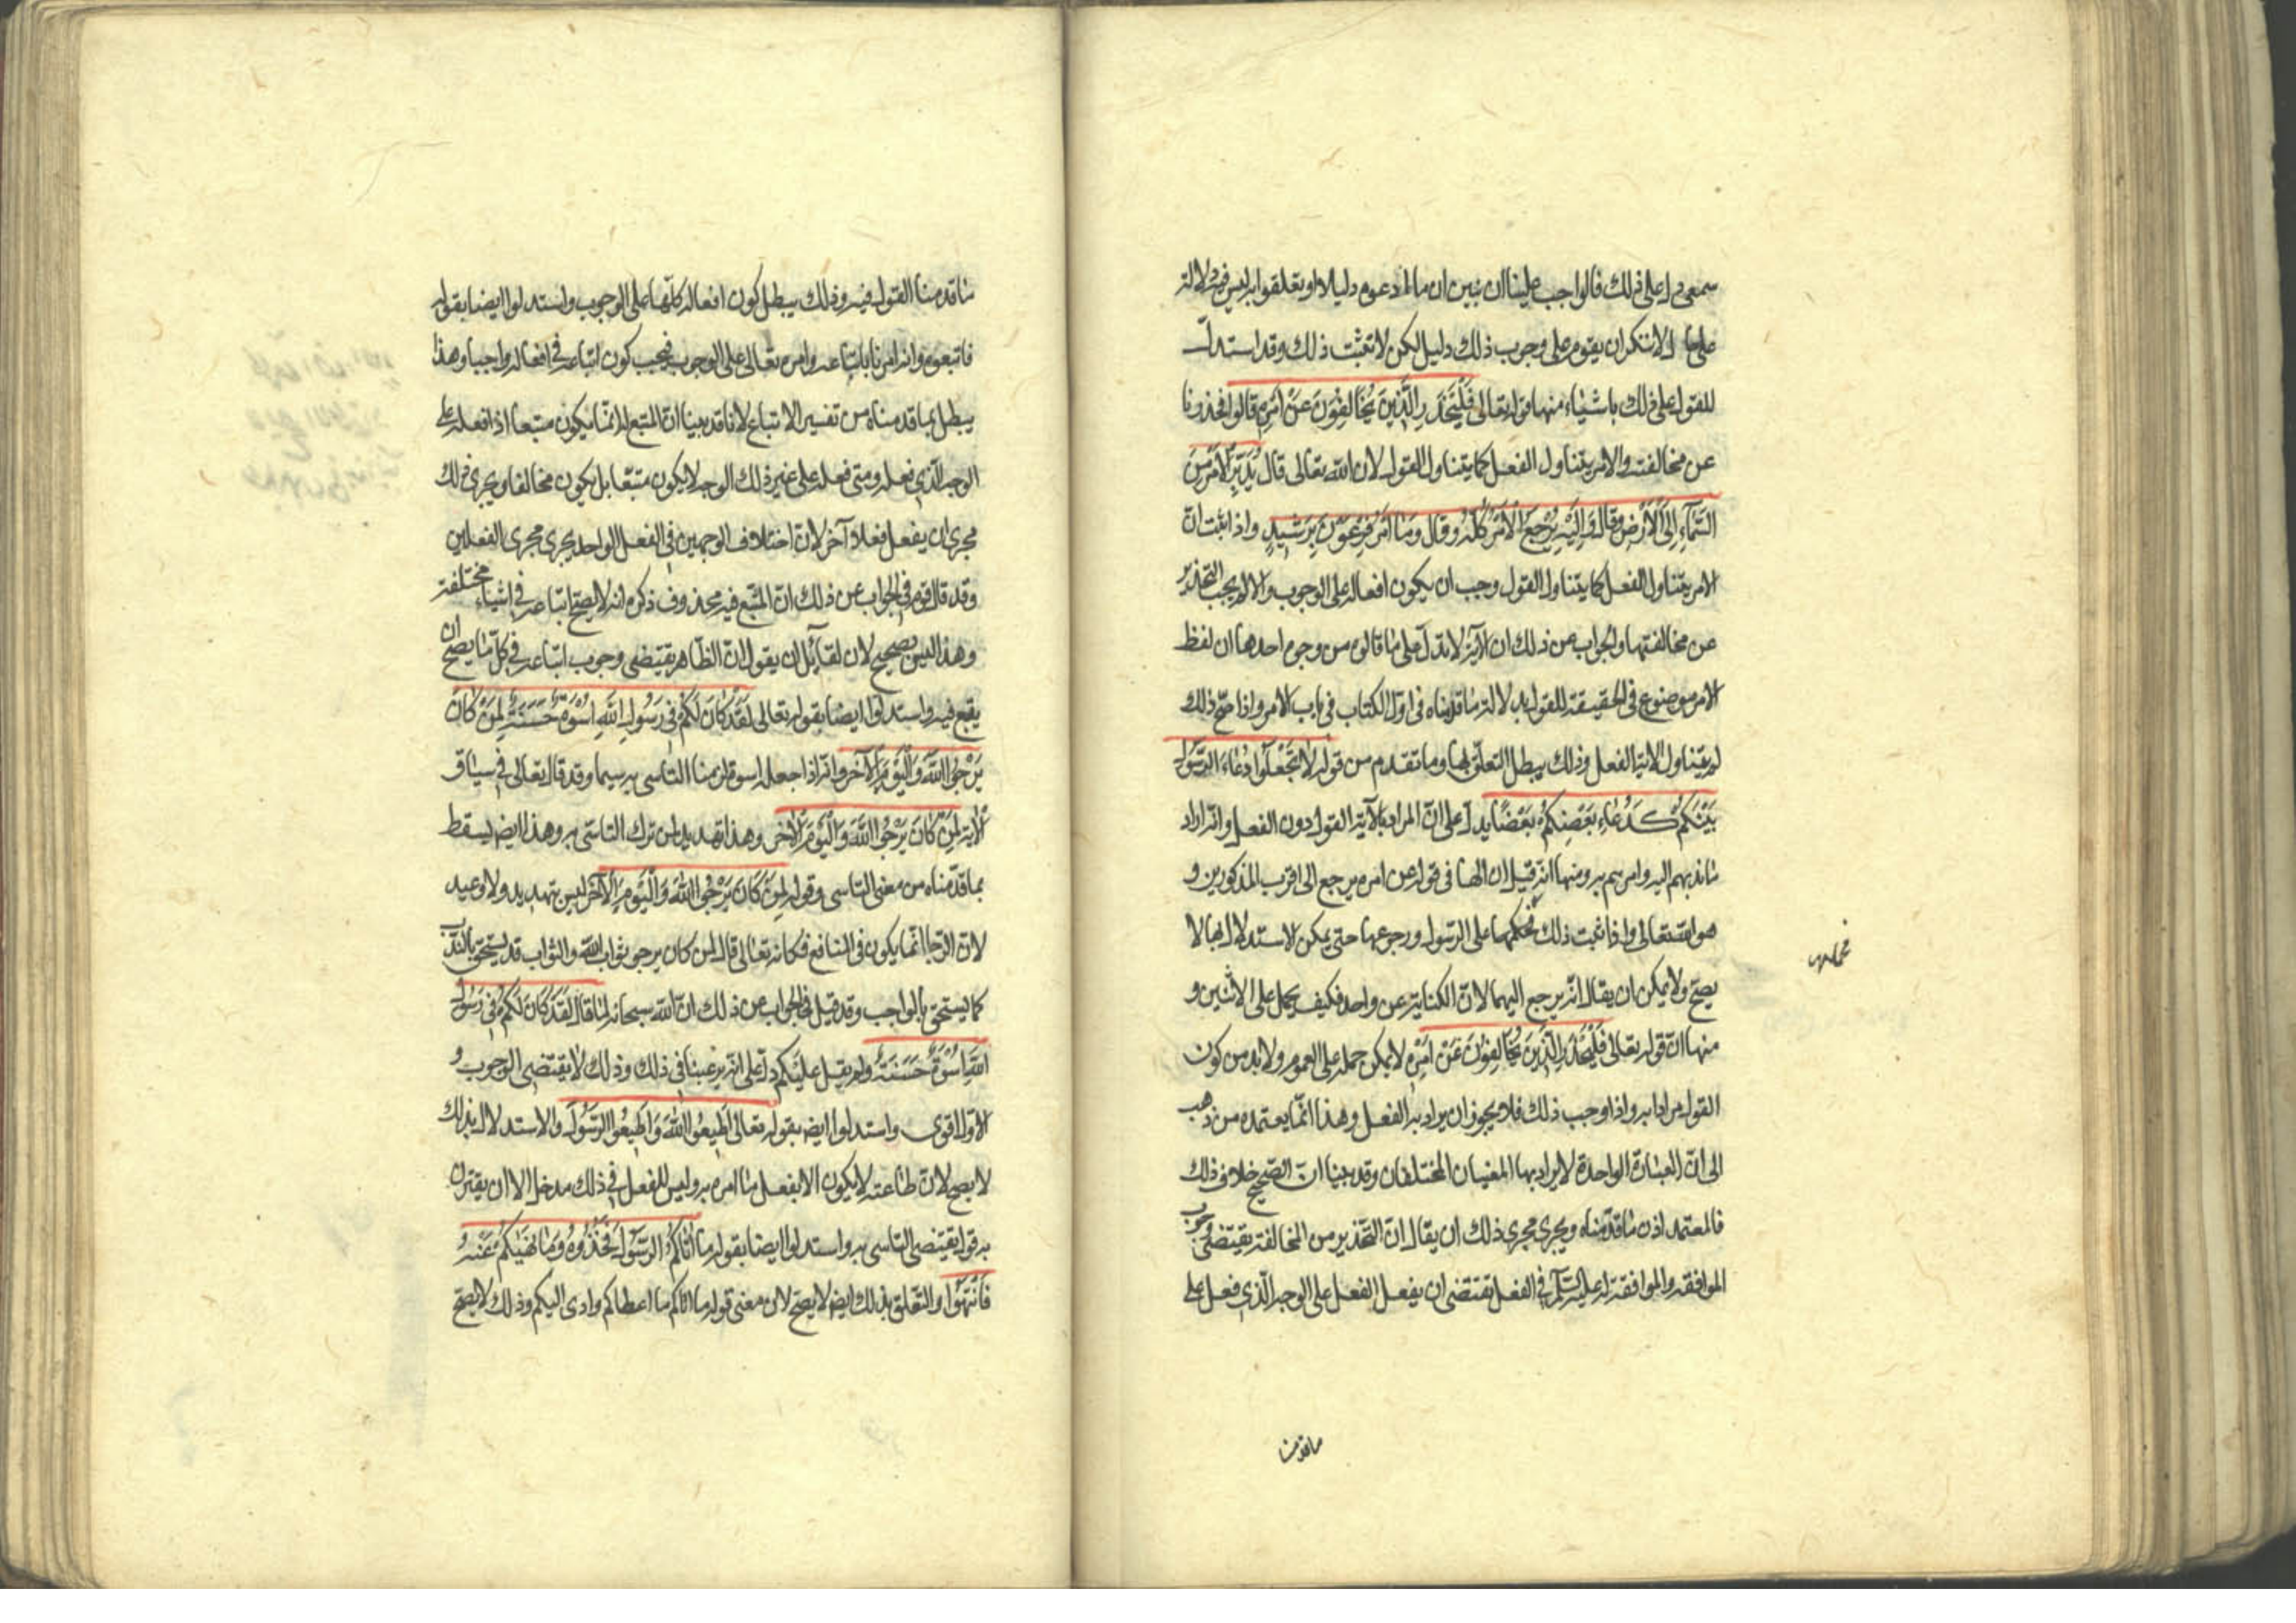 سمعى دل على ذلك فالواجب علينا ان نبين ان ما ادعوه دليلا او تعلقوا به ليس فيه دلالة
على لانا لا ننكر ان يقوم على وجوب ذلك دليل لكن لا نثبت ذلك وقد استدل
للقول على ذلك باشياء منها قوله تعالى فَلْيَحْذَرِ الَّذِينَ يُخَالِفُونَ عَنْ أَمْرِهِ قالوا فحذرنا
عن مخالفته والامر يتناول الفعل كما يتناول القول لان الله تعالى قال يُدَبِّرُ الأَمْرَ مِنَ
السَّمَاءِ إِلَى الأَرْضِ وقال وَإِلَيْهِ يُرْجَعُ الأَمْرُ كُلُّهُ وقال وَمَا أَمْرُ فِرْعَوْنَ بِرَشِيدٍ واذا ثبت انّ
الامر يتناول الفعل كما يتناول القول وجب ان يكون افعاله على الوجوب والا لم يجب التحذير
عن مخالفتها والجواب عن ذلك ان الآية لا تدلّ على ما قالوه من وجوه احدها ان لفظ
الامر موضوع فى الحقيقة للقول بدلالة ما قدمناه فى اول الكتاب فى باب الامر واذا صح ذلك
لم يتناول الاية الفعل وذلك يبطل التعلّق بها وما تقدم من قوله لا تَجْعَلُوا دُعَاءَ الرَّسُولِ
بَيْنَكُمْ كَدُعَاءِ بَعْضِكُمْ بَعْضًا يدل على انّ المراد بالآية القول دون الفعل وانّه اراد
ما ندبهم اليه وامرهم به ومنها انه قيل ان الها فى قوله عن امره يرجع الى اقرب المذكورين و
هو الله تعالى واذا ثبت ذلك فحكمها على الرسول ورجوعها حتى يمكن الاستدلال بها لا
يصح ولا يمكن ان يقال انّه يرجع اليهما لانّ الكناية عن واحد فكيف يحمل على الاثنين و
منها انّ قوله تعالى فَلْيَحْذَرِ الَّذِينَ يُخَالِفُونَ عَنْ أَمْرِهِ لا يمكن حمله على العموم ولا بد من كون
القول مرادا به واذا وجب ذلك فلا يجوز ان يراد به الفعل وهذا انّما يعتمده من ذهب
الى انّ العبارة الواحدة لا يراد بها المعنيان المختلفان وقد بينا انّ الصّحيح خلاف ذلك
فالمعتمد اذن ما قدّمناه ويجرى مجرى ذلك ان يقال انّ التحذير من المخالفة يقتضى وجوب
الموافقة والموافقة له عليه السّلم فى الفعل تقتضى ان يفعل الفعل على الوجه الّذي فعل على
ما قدمنا
ما قدمنا القول فيه وذلك يبطل كون افعاله كلّها على الوجوب واستدلوا ايضا بقوله
فاتبعوه وانه امرنا باتباعه وامره تعالى على الوجوب فيجب كون اتباعه فى افعاله واجبا وهذا
يبطل بما قدمناه من تفسير الاتباع لانا قد بينا انّ المتبع له انّما يكون متبعا اذا فعله على
الوجه الّذي فعله ومتى فعله على غير ذلك الوجه لا يكون متبعا بل يكون مخالفا ويجرى ذلك
مجرى ان يفعل فعلا آخر لانّ اختلاف الوجهين فى الفعل الواحد يجرى مجرى الفعلين
وقد قال قوم فى الجواب عن ذلك انّ المتبع فيه محذوف ذكره لانه لا يصح اتباعه فى اشياء مختلفة
وهذا ليس بصحيح لان لقائل ان يقول انّ الظاهر يقتضى وجوب اتباعه فى كلّ ما يصح ان
يقع فيه واستدلوا ايضا بقوله تعالى لَقَدْ كَانَ لَكُمْ فِي رَسُولِ اللهِ أُسْوَةٌ حَسَنَةٌ لِمَنْ كَانَ
يَرْجُو اللهَ وَالْيَوْمَ الآخِرَ وانّه اذا جعله اسوة لزمنا التاسى به سيما وقد قال تعالى فى سياق
الآية لِمَنْ كَانَ يَرْجُو اللهَ وَالْيَوْمَ الآخِرَ وهذا تهديد لمن ترك التاسّى به وهذا ايضا يسقط
بما قدّمناه من معنى التاسى وقوله لِمَنْ كَانَ يَرْجُو اللهَ وَالْيَوْمَ الآخِرَ ليس بتهديد ولا وعيد
لانّ الرّجا انّما يكون فى المنافع فكانه تعالى قال لمن كان يرجو ثواب الله والثواب قد يستحق بالندب
كما يستحق بالواجب وقد قيل فى الجواب عن ذلك انّ الله سبحانه لمّا قال لَقَدْ كَانَ لَكُمْ فِي رَسُولِ
اللهِ أُسْوَةٌ حَسَنَةٌ ولم يقل عليكم دلّ على انّه يرغبنا فى ذلك وذلك لا يقتضى الوجوب و
الاول اقوى واستدلوا ايضا بقوله تعالى أَطِيعُوا اللهَ وَأَطِيعُوا الرَّسُولَ والاستدلال بذلك
لا يصح لانّ طاعته لا يكون الا بفعل ما امره به وليس للفعل فى ذلك مدخل الا ان يقترن
به قول يقتضى التاسى به واستدلوا ايضا بقوله مَا آتَاكُمُ الرَّسُولُ فَخُذُوهُ وَمَا نَهَيكُمْ عَنْهُ
فَانْتَهُوا والتعلق بذلك ايضا لا يصح لان معنى قوله ما اتاكم ما اعطاكم وادى اليكم وذلك لا يصحّ